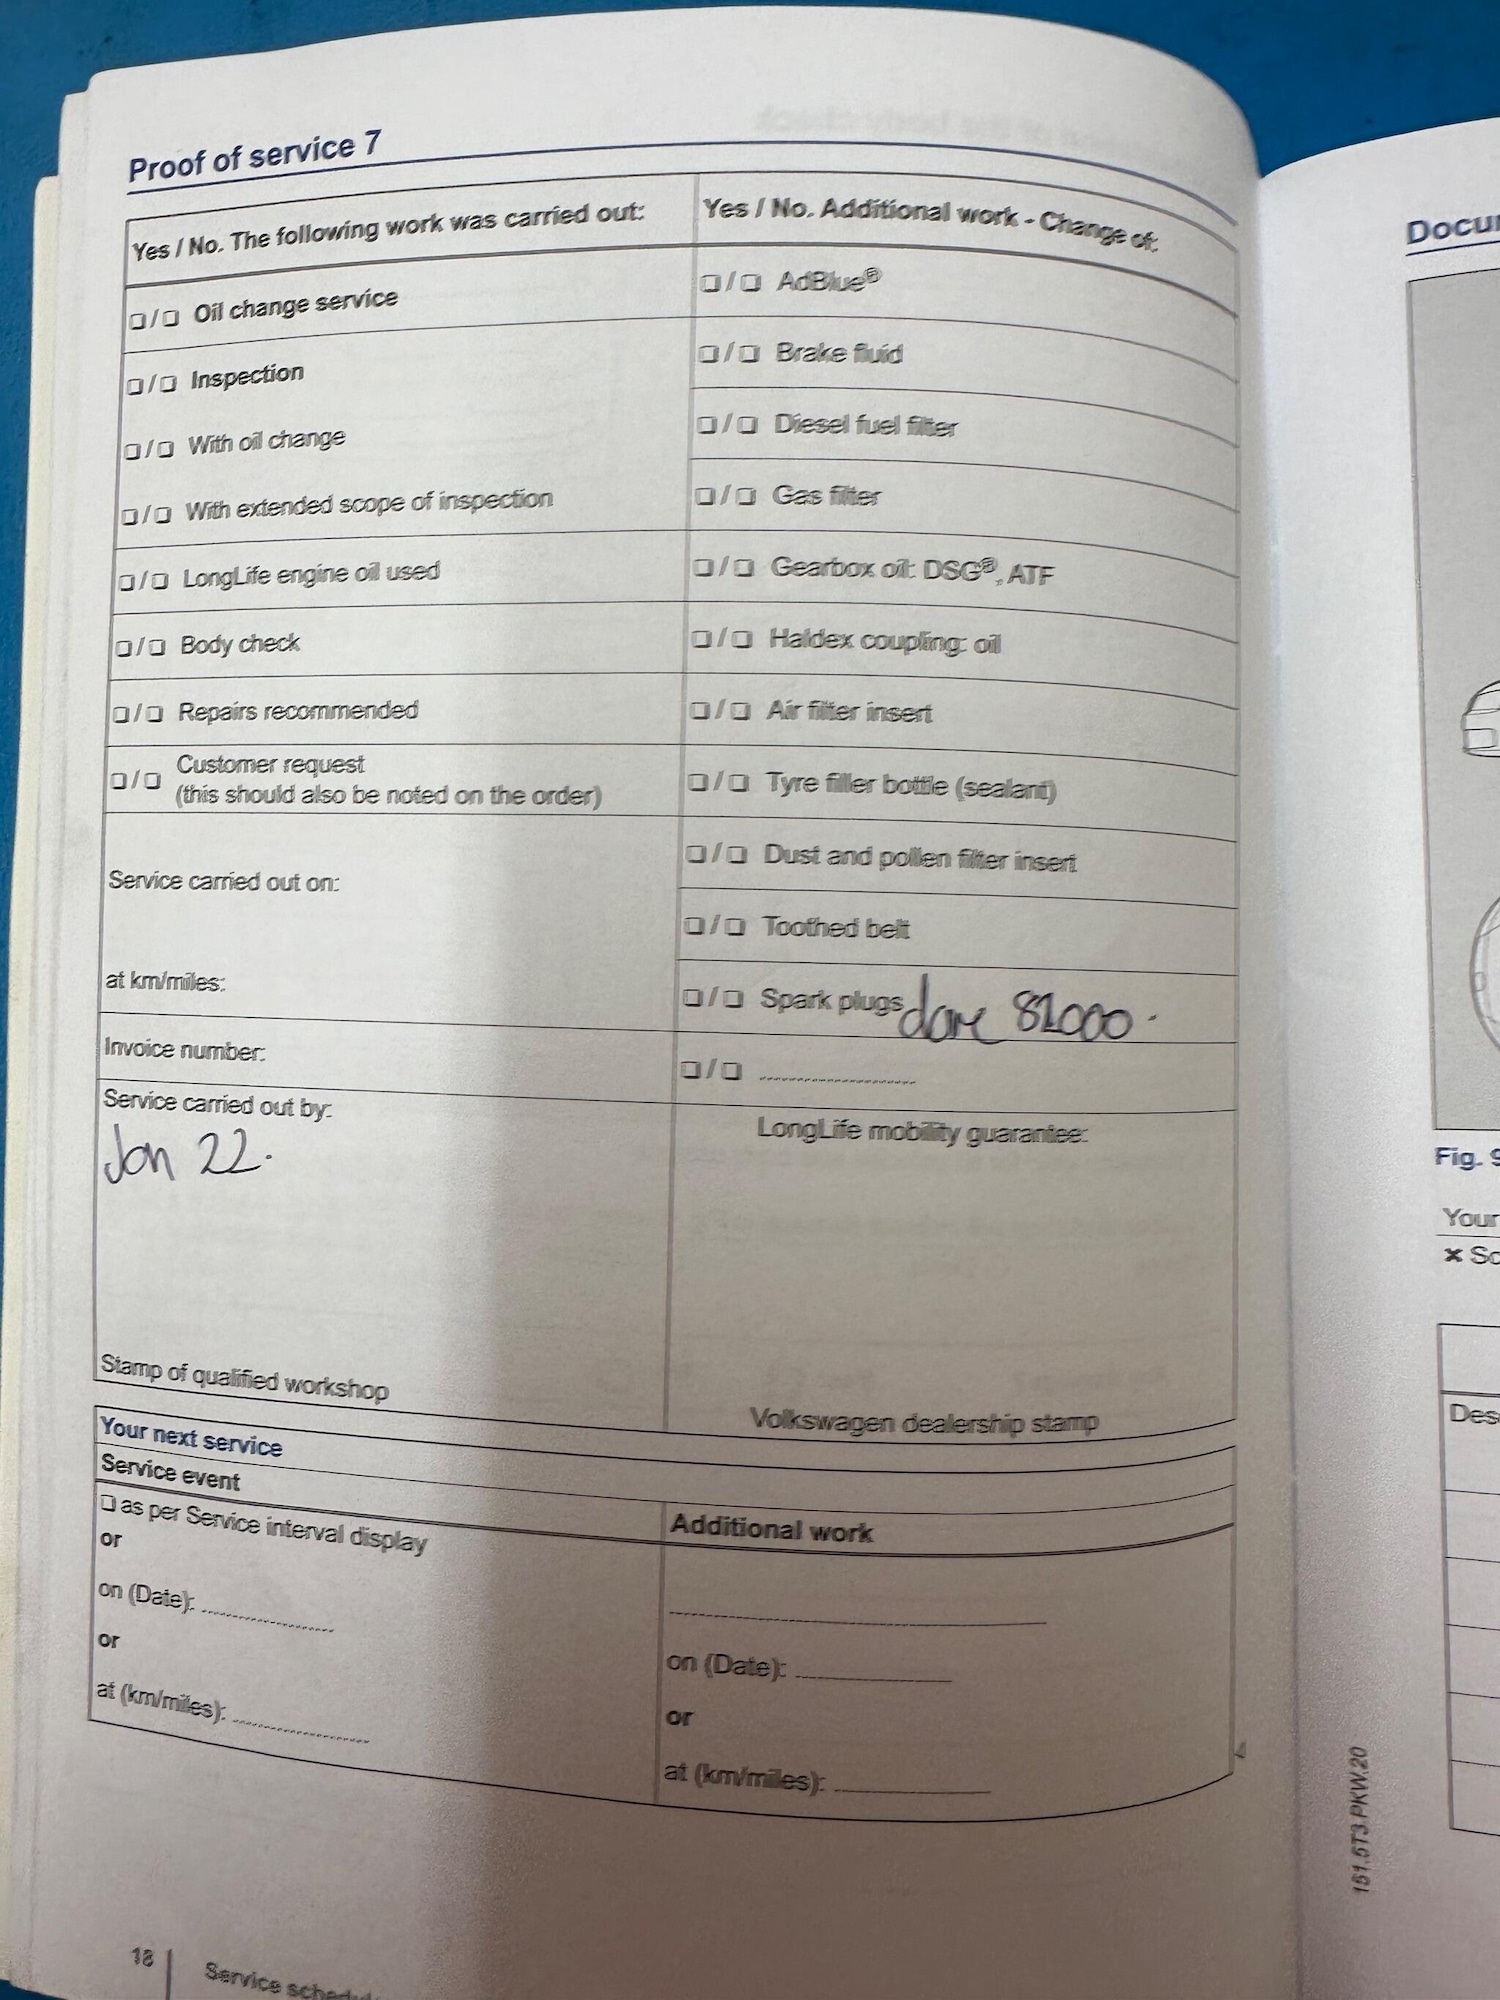 Proof of service 7
Yes / No. The following work was carried out:
❑ / ❑ Oil change service
❑ / ❑ Inspection
❑ / ❑ With oil change
❑ / ❑ With extended scope of inspection
❑ / ❑ LongLife engine oil used
❑ / ❑ Body check
❑ / ❑ Repairs recommended
❑ / ❑ Customer request
(this should also be noted on the order)
Service carried out on:
at km/miles:
Invoice number:
Service carried out by:
Jan 22.
Stamp of qualified workshop
Yes / No. Additional work - Change of:
❑ / ❑ AdBlue®
❑ / ❑ Brake fluid
❑ / ❑ Diesel fuel filter
❑ / ❑ Gas filter
❑ / ❑ Gearbox oil: DSG®, ATF
❑ / ❑ Haldex coupling: oil
❑ / ❑ Air filter insert
❑ / ❑ Tyre filler bottle (sealant)
❑ / ❑ Dust and pollen filter insert
❑ / ❑ Toothed belt
❑ / ❑ Spark plugs done 82000.
❑ / ❑ ....................
LongLife mobility guarantee:
Volkswagen dealership stamp
Your next service
Service event
❑ as per Service interval display
or
on (Date): ....................
or
at (km/miles): ....................
Additional work
on (Date):
or
at (km/miles):
18
Service
151.5T3.PKW.20
Fig.
Your